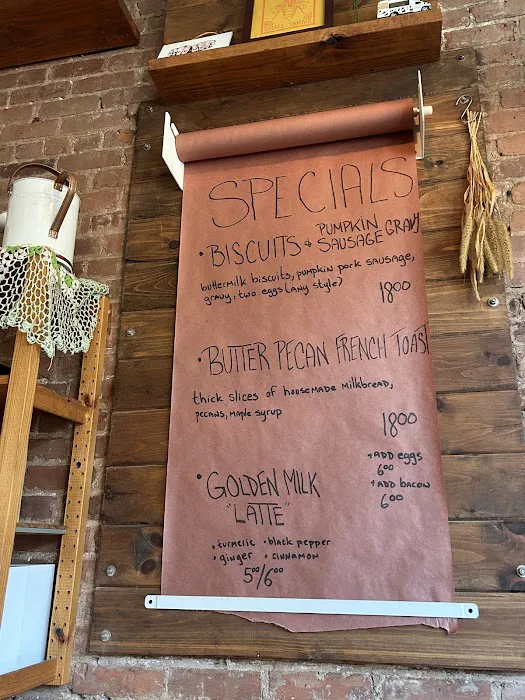 SPECIALS
• BISCUITS + PUMPKIN SAUSAGE GRAVY
buttermilk biscuits, pumpkin pork sausage,
gravy, two eggs (any style)
1800
• BUTTER PECAN FRENCH TOAST
thick slices of housemade milkbread,
pecans, maple syrup
1800
+ADD eggs
600
+ADD bacon
600
• GOLDEN MILK
"LATTE"
• turmeric • black pepper
• ginger • cinnamon
500/600